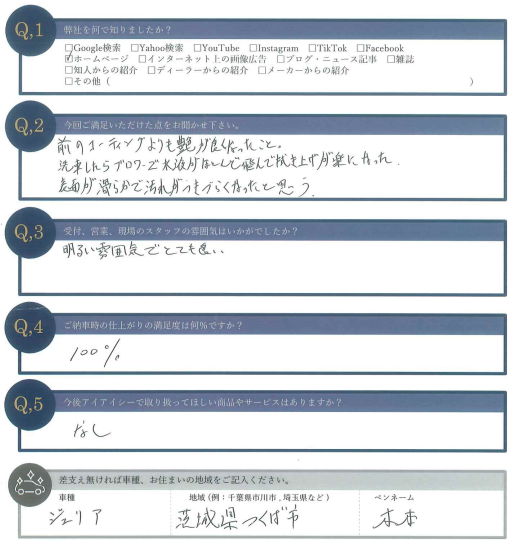 Q,1 弊社を何で知りましたか？
□Google検索 □Yahoo検索 □YouTube □Instagram □TikTok □Facebook
☑ホームページ □インターネット上の画像広告 □ブログ・ニュース記事 □雑誌
□知人からの紹介 □ディーラーからの紹介 □メーカーからの紹介
□その他（ ）
Q,2 今回ご満足いただけた点をお聞かせ下さい。
前のコーティングよりも艶が良くなったこと。
洗車したらブロワーで水滴がほとんど飛んで拭き上げが楽になった.
表面が滑らかで汚れがつきづらくなったと思う.
Q,3 受付、営業、現場のスタッフの雰囲気はいかがでしたか？
明るい雰囲気でとても良い.
Q,4 ご納車時の仕上がりの満足度は何％ですか？
100%
Q,5 今後アイアイシーで取り扱ってほしい商品やサービスはありますか？
なし
差支え無ければ車種、お住まいの地域をご記入ください。
車種 地域（例：千葉県市川市，埼玉県など） ペンネーム
ジュリア 茨城県つくば市